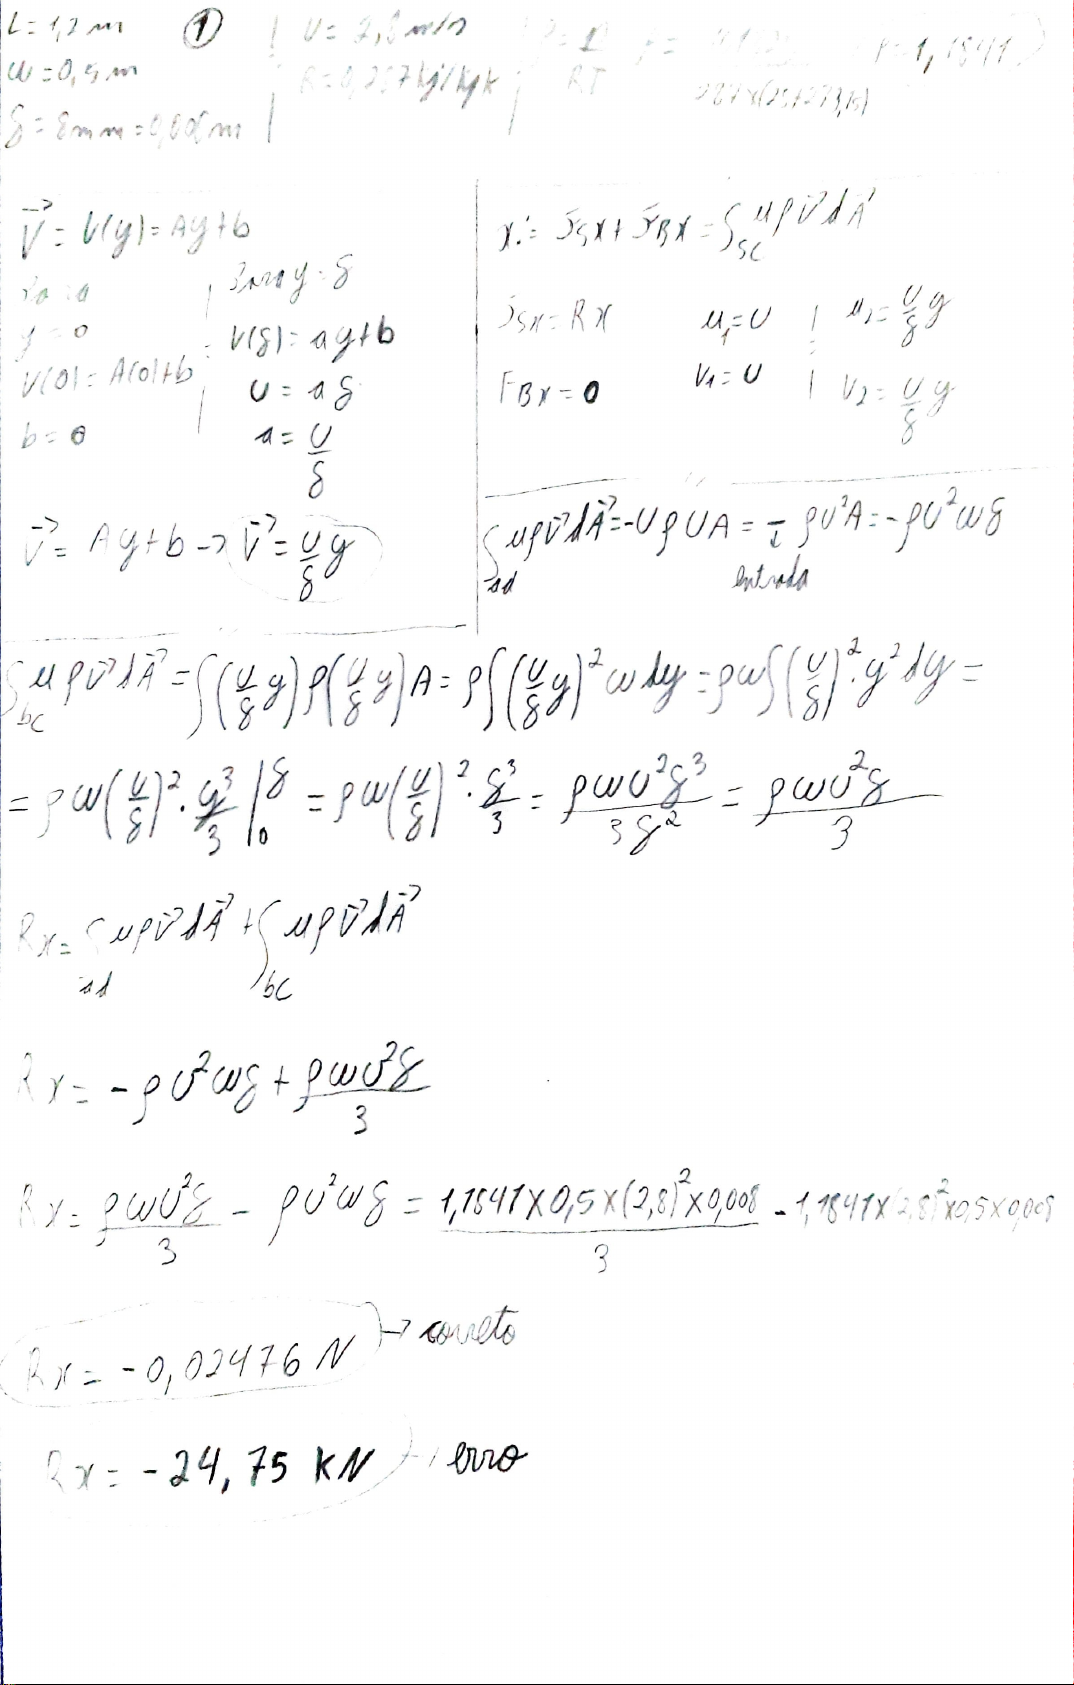 L = 1,2 m
①
U = 2,8 m/s
w = 0,5 m
R = 0,287 kj/kg k
RT
287 x (25+273,15)
ρ = 1,1841
δ = 8mm = 0,008 m
V⃗ = V(y) = Ay + b
Para
y = 0
V(0) = A(0) + b
b = 0
Para y = δ
V(δ) = ay + b
U = a δ
a = U/δ
V⃗ = Ay + b → V⃗ = U/δ y
x: = Fsx + FBx = ∫sc uρV⃗dA⃗
Fsx = Rx
u₁ = U
u₂ = U/δ y
FBx = 0
V₁ = U
V₂ = U/δ y
∫ad uρV⃗dA⃗ = -UρUA = - ρU²A = -ρU²wδ
entrada
∫bc uρV⃗dA⃗ = ∫(U/δ y) ρ(U/δ y) A = ρ∫(U/δ y)² w dy = ρw∫(U/δ)² · y² dy =
= ρw(U/δ)² · y³/3 |₀^δ = ρw(U/δ)² · δ³/3 = ρwU²δ³/3δ² = ρwU²δ/3
Rx = ∫ad uρV⃗dA⃗ + ∫bc uρV⃗dA⃗
Rx = -ρU²wδ + ρwU²δ/3
Rx = ρwU²δ/3 - ρU²wδ = 1,1841 x 0,5 x (2,8)² x 0,008/3 - 1,1841 x (2,8)² x 0,5 x 0,008
Rx = -0,02476 N → correto
Rx = -24,75 KN → erro